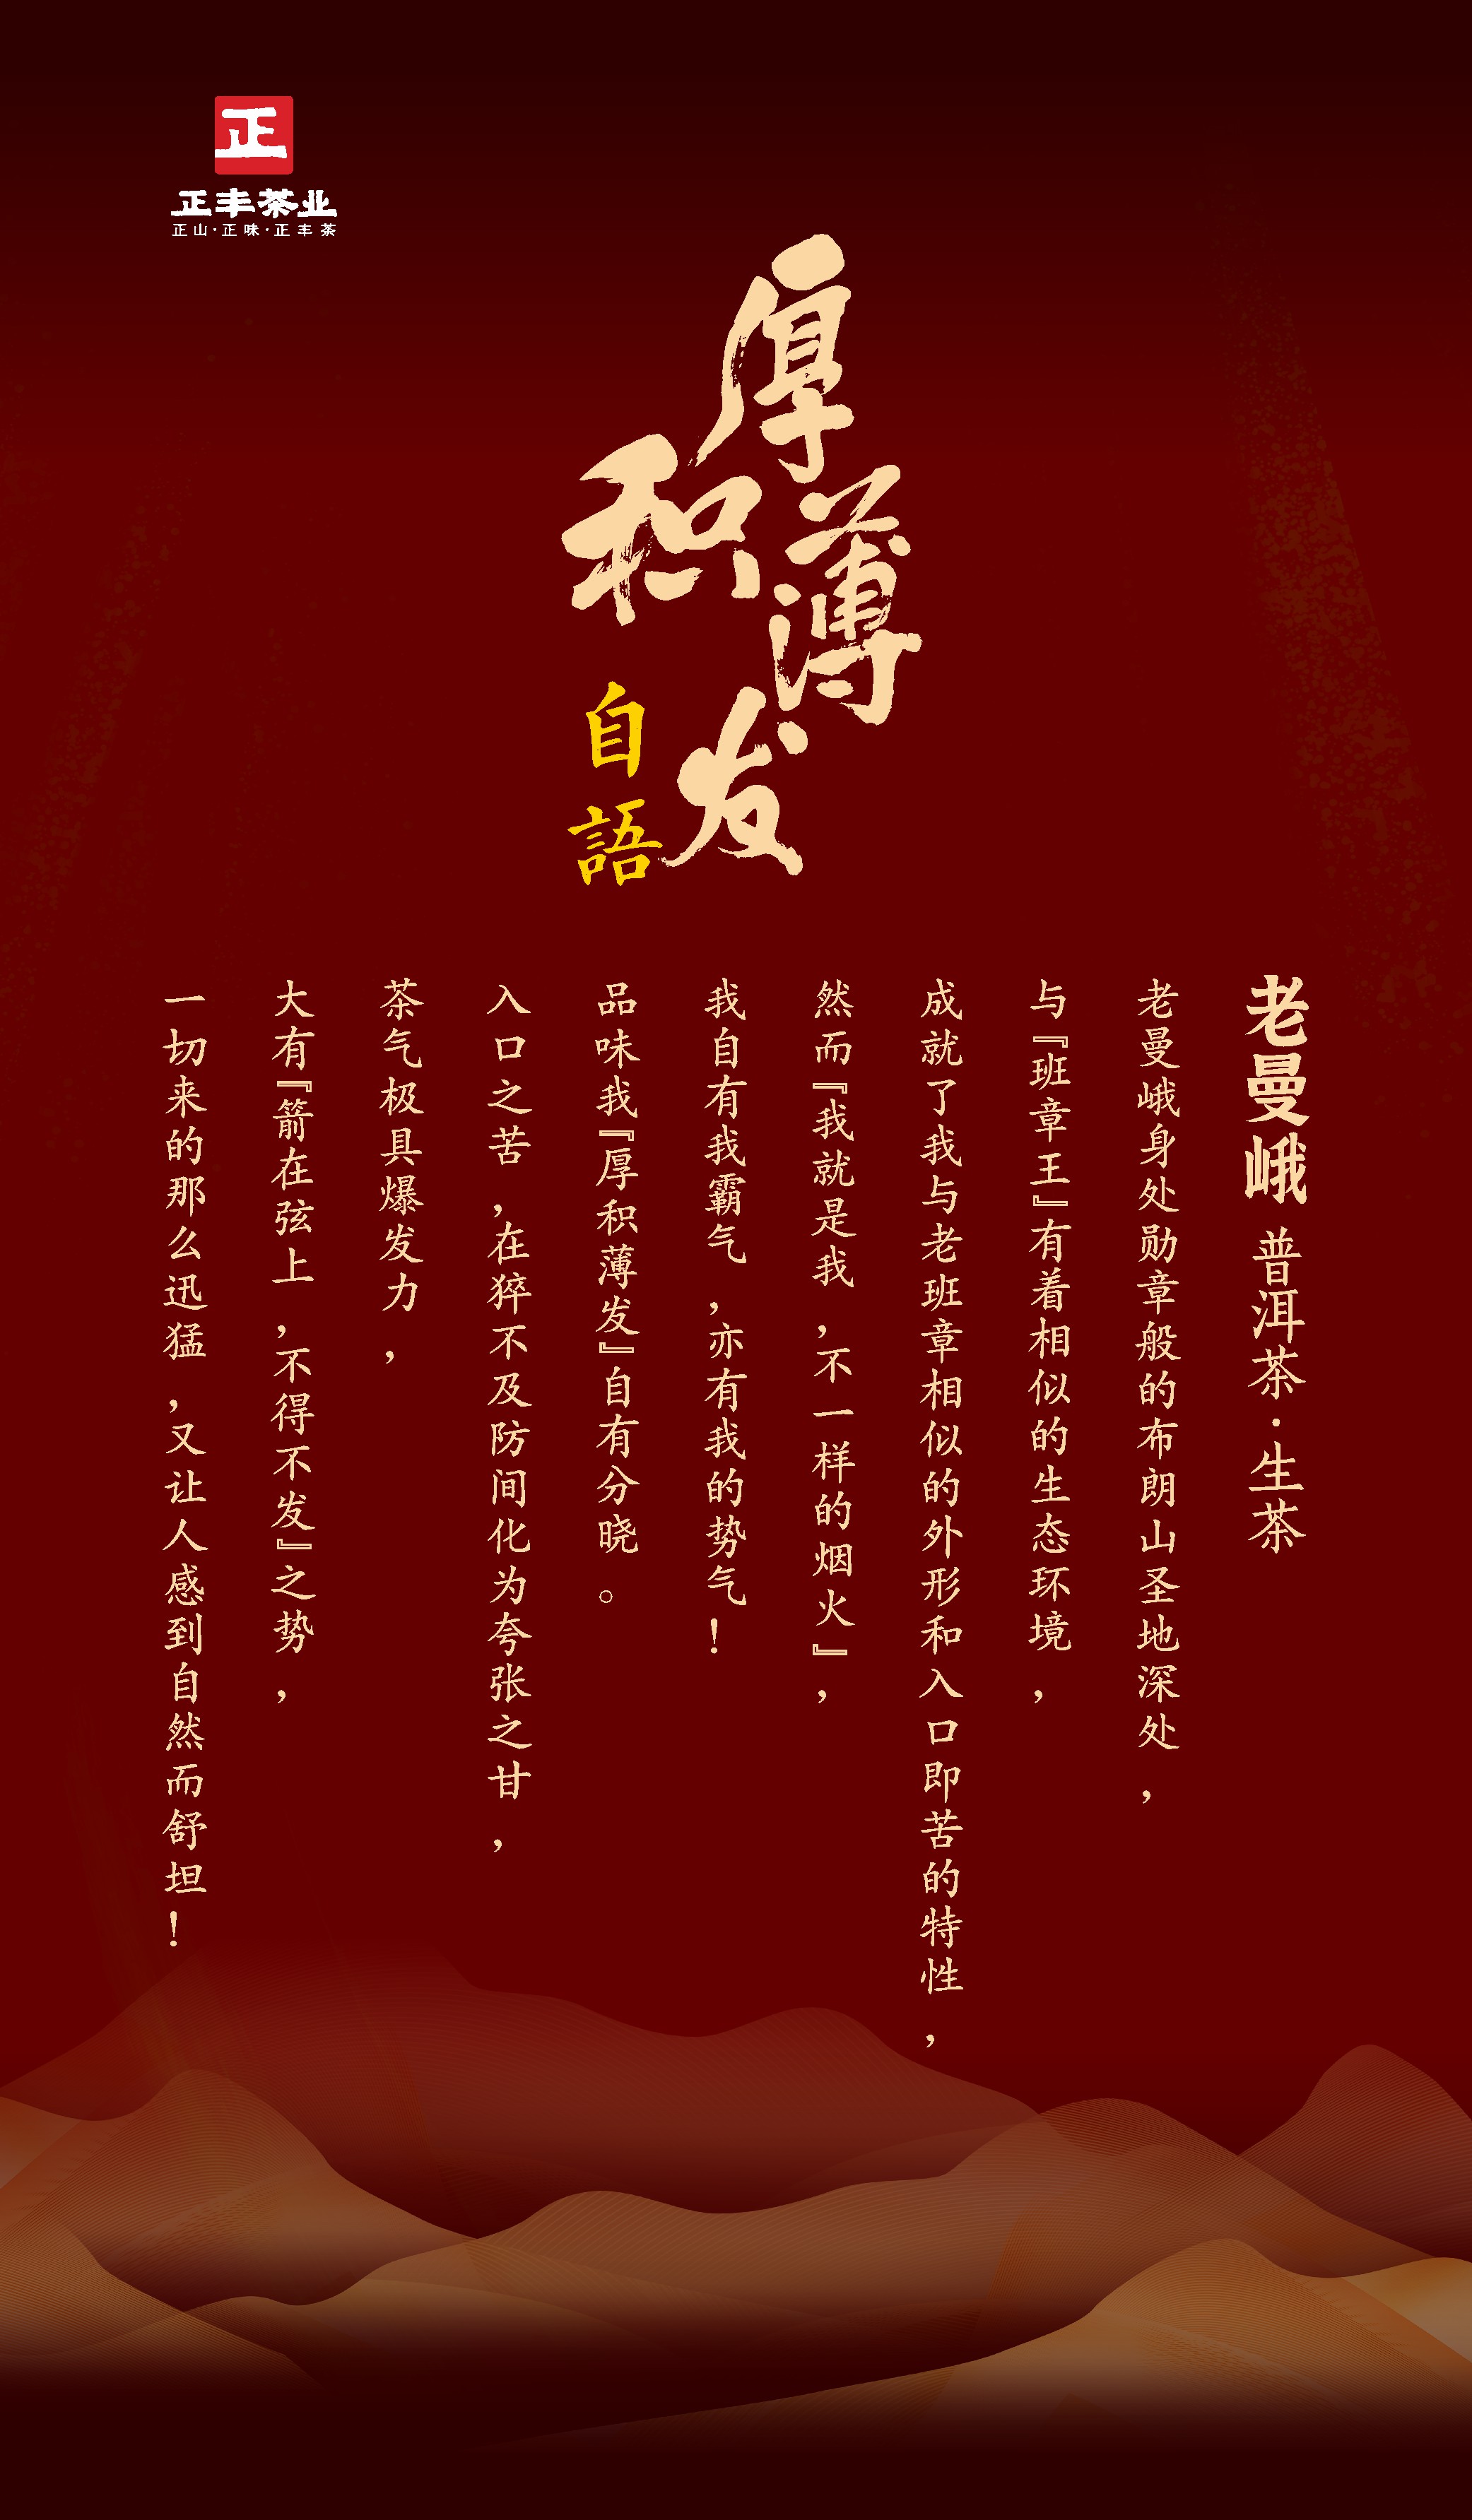 正
正丰茶业
正山·正味·正丰茶
厚积薄发
自語
老曼峨 普洱茶·生茶
老曼峨身处勋章般的布朗山圣地深处，
与『班章王』有着相似的生态环境，
成就了我与老班章相似的外形和入口即苦的特性，
然而『我就是我，不一样的烟火』，
我自有我霸气，亦有我的势气！
品味我『厚积薄发』自有分晓。
入口之苦，在猝不及防间化为夸张之甘，
茶气极具爆发力，
大有『箭在弦上，不得不发』之势，
一切来的那么迅猛，又让人感到自然而舒坦！